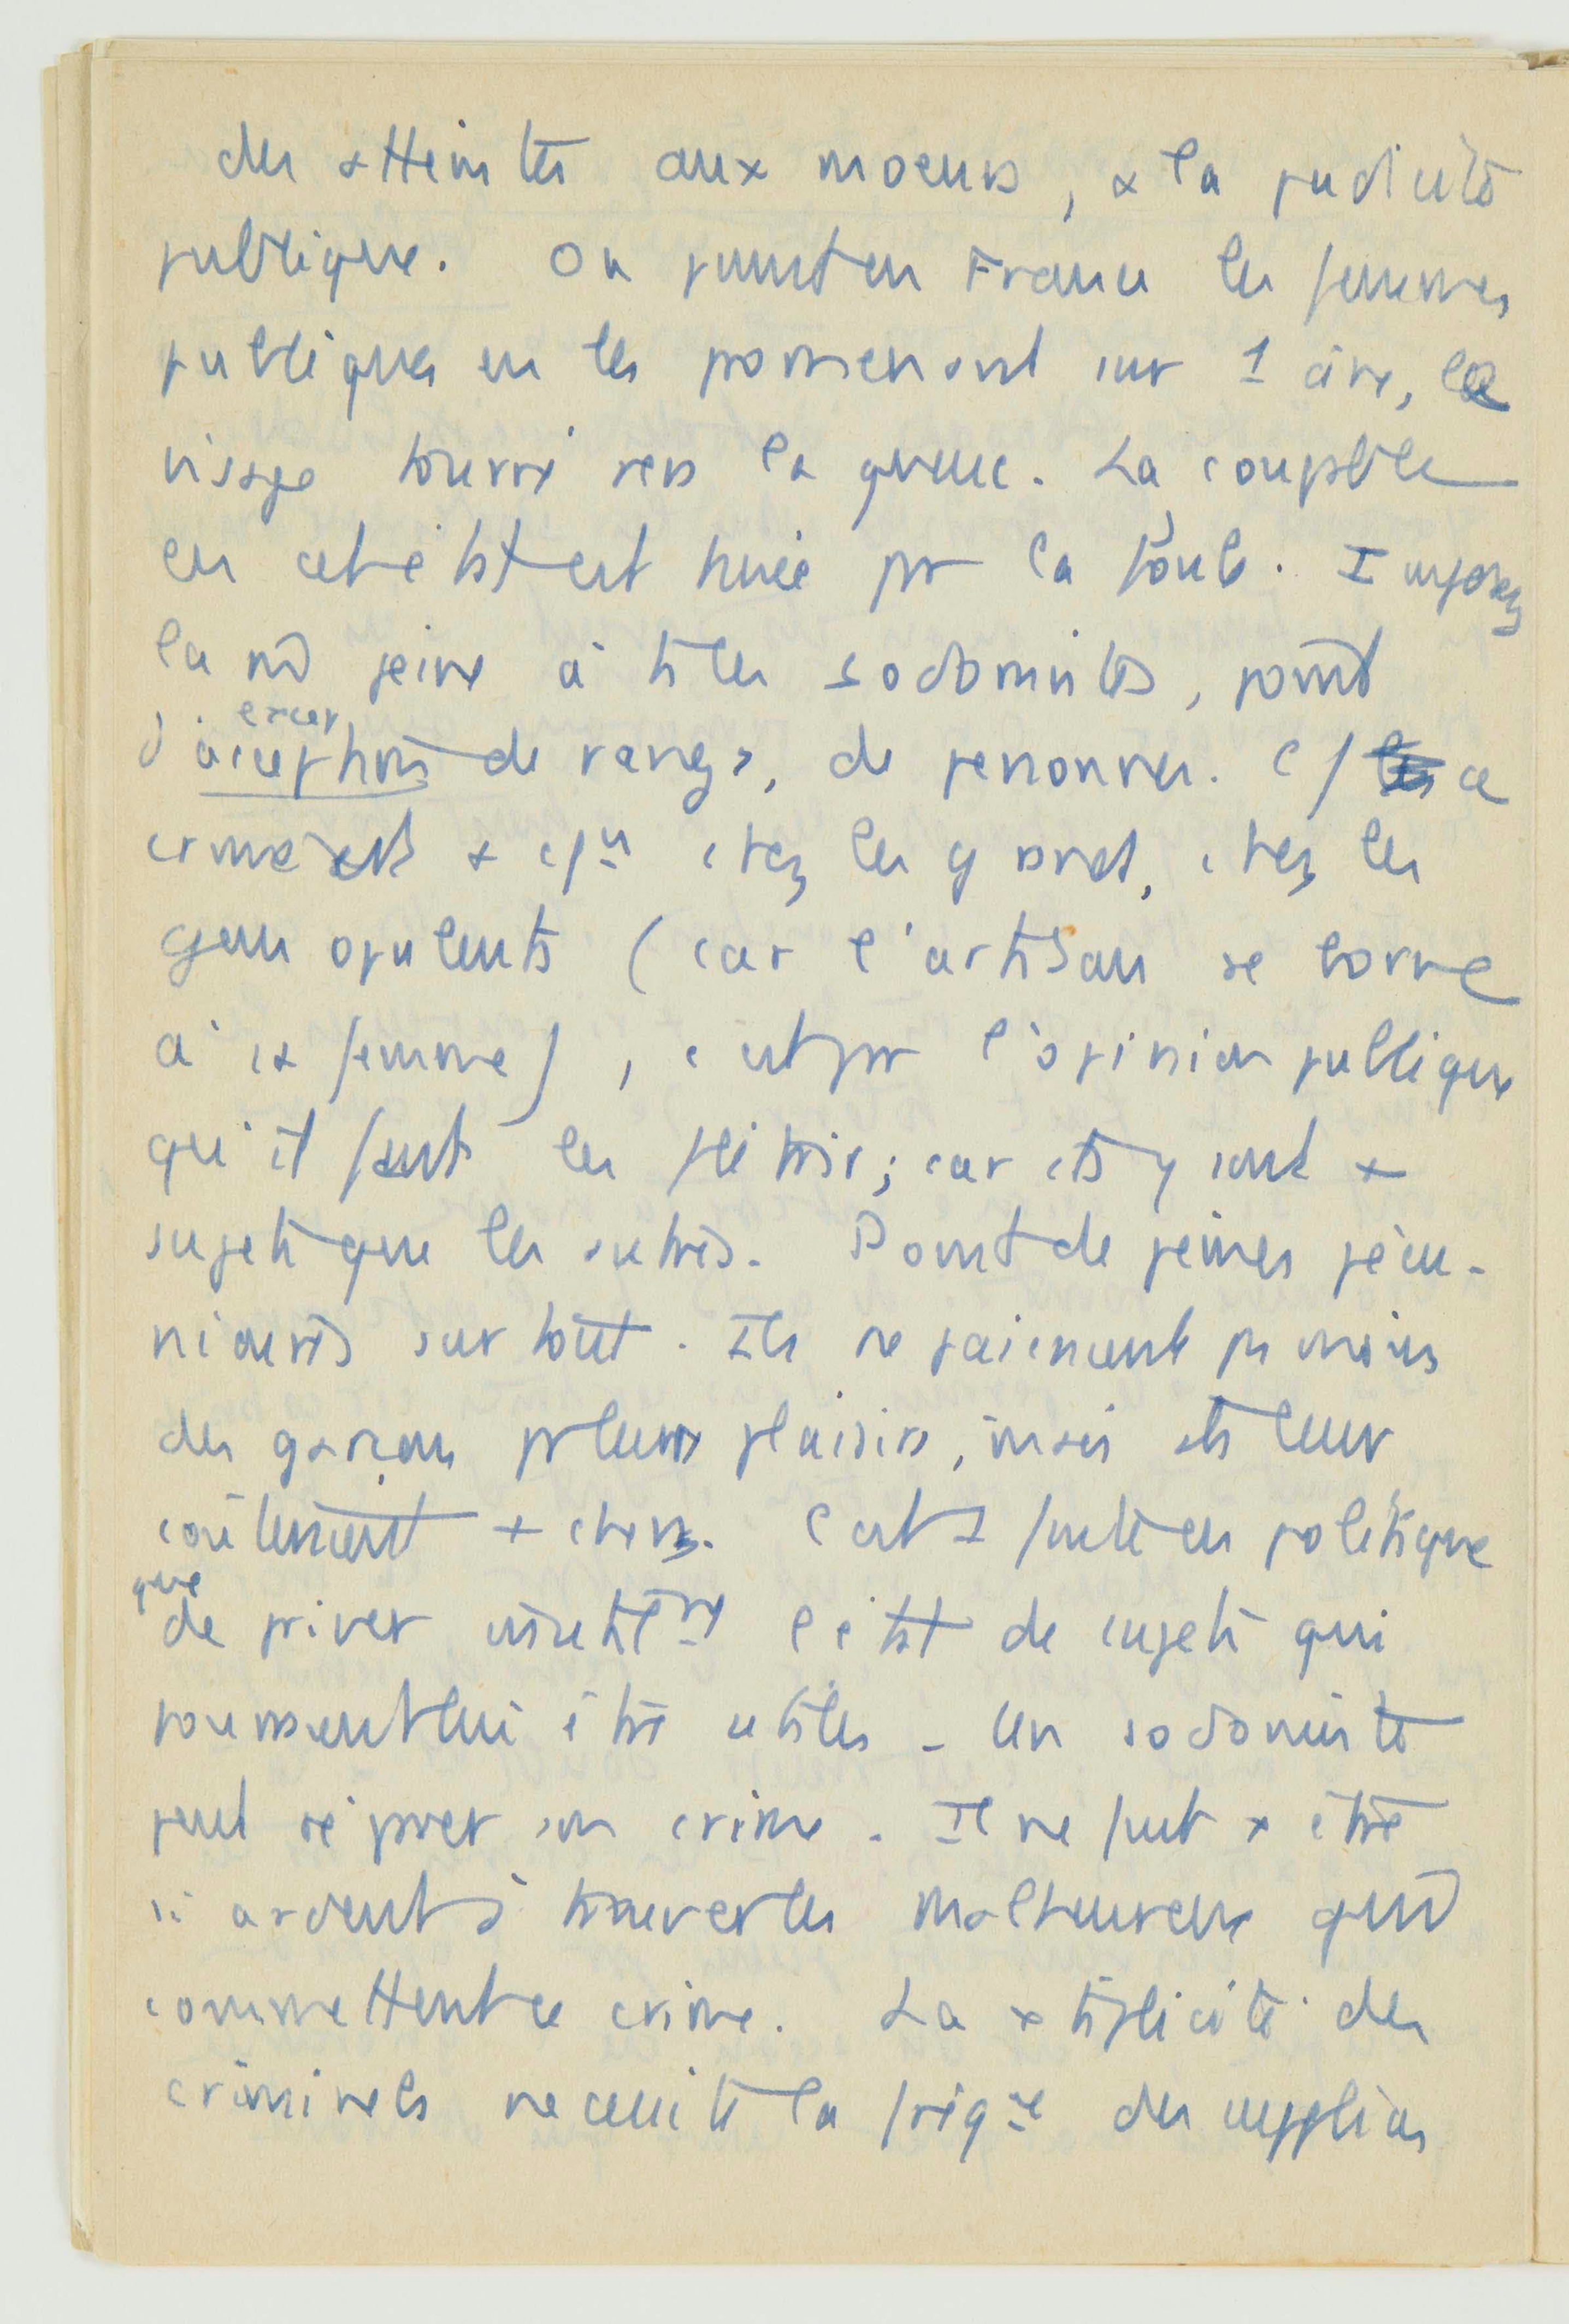 des atteintes aux moeurs, a la pudicité
publique. On punit en France les femmes
publiques en les promenant sur 1 âne, le
visage tourné vers la queue. La coupable
en cet état est huée par la foule. Imposez
la mê peine à ts les sodomistes, point
d'acceptions de rangs, de personnes. Cō ce
excep
crime est + cōun chez les grands, chez les
gens opulents (car l'artisan se borne
à sa femme), c'est par l'opinion publique
qu'il faut les flétrir; car ils y sont +
sujets que les autres. Point de peines pécu-
niaires surtout. Ils ne paieraient pas moins
des garçons pr leurs plaisirs, mais ils leur
coûteraient + chers. C'est 1 faute en politique
que
de priver inutilemt l'état de sujets qui
pourraient lui être utiles - Un sodomiste
peut réparer son crime. Il ne faut x être
si ardent à trouver les malheureux quid
commettent ce crime. La xtiplicité des
criminels necessite la fréqce des supplices